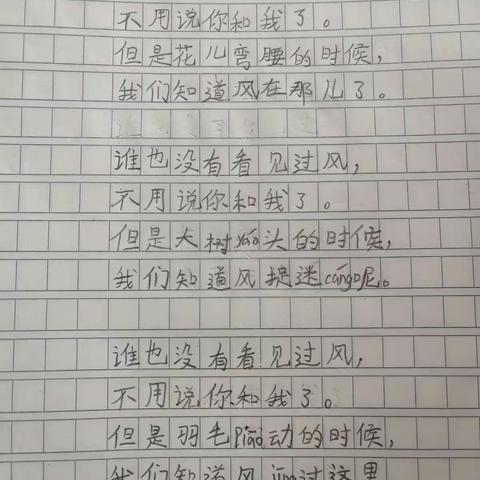 不用说你和我了。
但是花儿弯腰的时候，
我们知道风在那儿了。
谁也没有看见过风，
不用说你和我了。
但是大树yáo头的时候，
我们知道风捉迷cáng呢。
谁也没有看见过风，
不用说你和我了。
但是羽毛piāo动的时候，
我们知道风jīng过这里